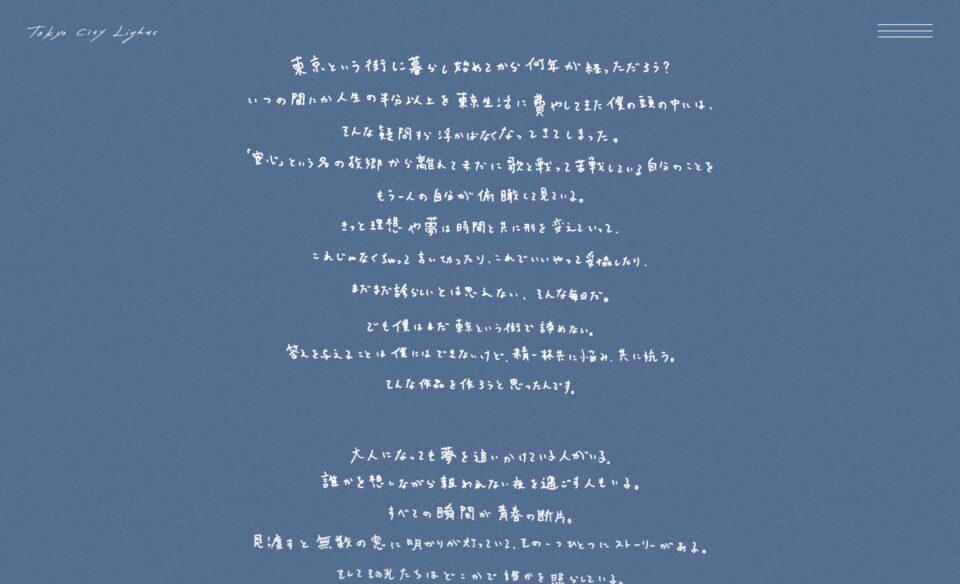 Tokyo City Lights
東京という街に暮らし始めてから何年が経っただろう?
いつの間にか人生の半分以上を東京生活に費やしてきた僕の頭の中には、
そんな疑問すら浮かばなくなってきてしまった。
「安心」という名の故郷から離れて未だに歌と戦って苦戦している自分のことを
もう一人の自分が俯瞰して見ている。
きっと理想や夢は時間と共に形を変えていって、
これじゃなくちゃって言い切ったり、これでいいやって妥協したり、
まだまだ誇らしいとは思えない、そんな毎日だ。
でも僕はまだ東京という街で諦めない。
答えを与えることは僕にはできないけど、精一杯共に悩み、共に抗う。
そんな作品を作ろうと思ったんです。
大人になっても夢を追いかけている人がいる。
誰かを想いながら報われない夜を過ごす人もいる。
すべての瞬間が青春の断片。
見渡すと無数の窓に明かりが灯っていて、その一つひとつにストーリーがある。
そしてその光たちはどこかで誰かを照らしている。